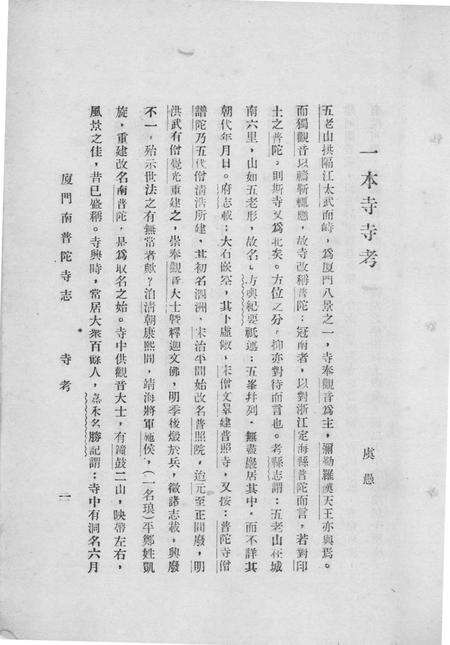 一本寺寺考
虞愚
五老山拱隔江太武而峙，爲厦門八景之一，寺奉觀音爲主，彌勒羅漢天王亦與焉。
而獨觀音以禱祈輒應，故寺改稱普陀；冠南者，以對浙江定海縣普陀而言，若對印
土之普陀。則斯寺又爲北矣。方位之分，抑亦對待而言也。考縣志謂：五老山在城
南六里，山如五老形，故名。方輿紀要祇述：五峯幷列，無盡巖居其中。而不詳其
朝代年月日。府志載：大石嵌空，其下虛敞，宋僧文翠建普照寺，又按：普陀寺僧
譜陀乃五代僧清浩所建，其初名泗洲，宋治平間始改名普照院，迨元至正間廢，明
洪武有僧覺光重建之，崇奉觀音大士曁釋迦文佛，明季後燬於兵，徵諸志載，興廢
不一，殆示世法之有無常者歟？洎清朝康熙間，靖海將軍施侯，（一名琅）平鄭姓凱
旋，重建改名南普陀，是爲取名之始。寺中供觀音大士，有鐘鼓二山，映帶左右，
風景之佳，昔已盛稱。寺興時，常居大衆百餘人，嘉禾名勝記謂：寺中有洞名六月
厦門南普陀寺志　寺考　一